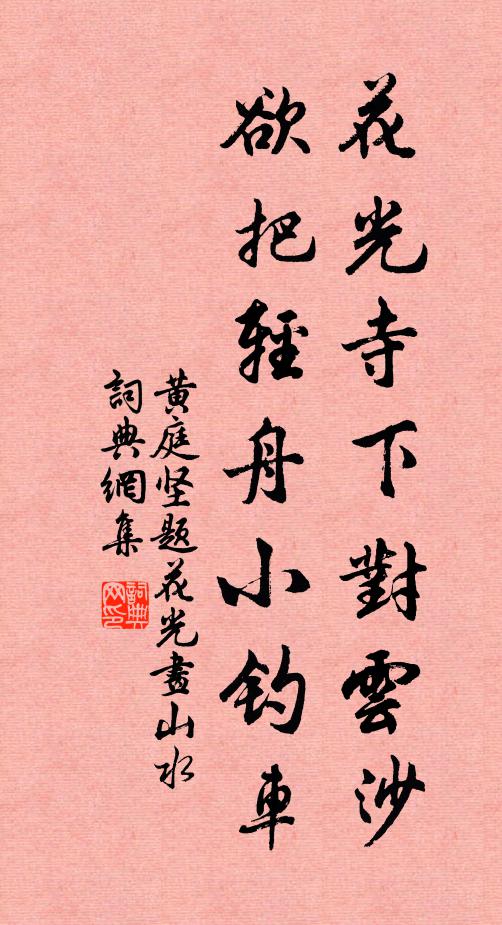 花光寺下對雲沙
欲把輕舟小釣車
黄庭坚題花光畫山水
詞典網集
詞典网印